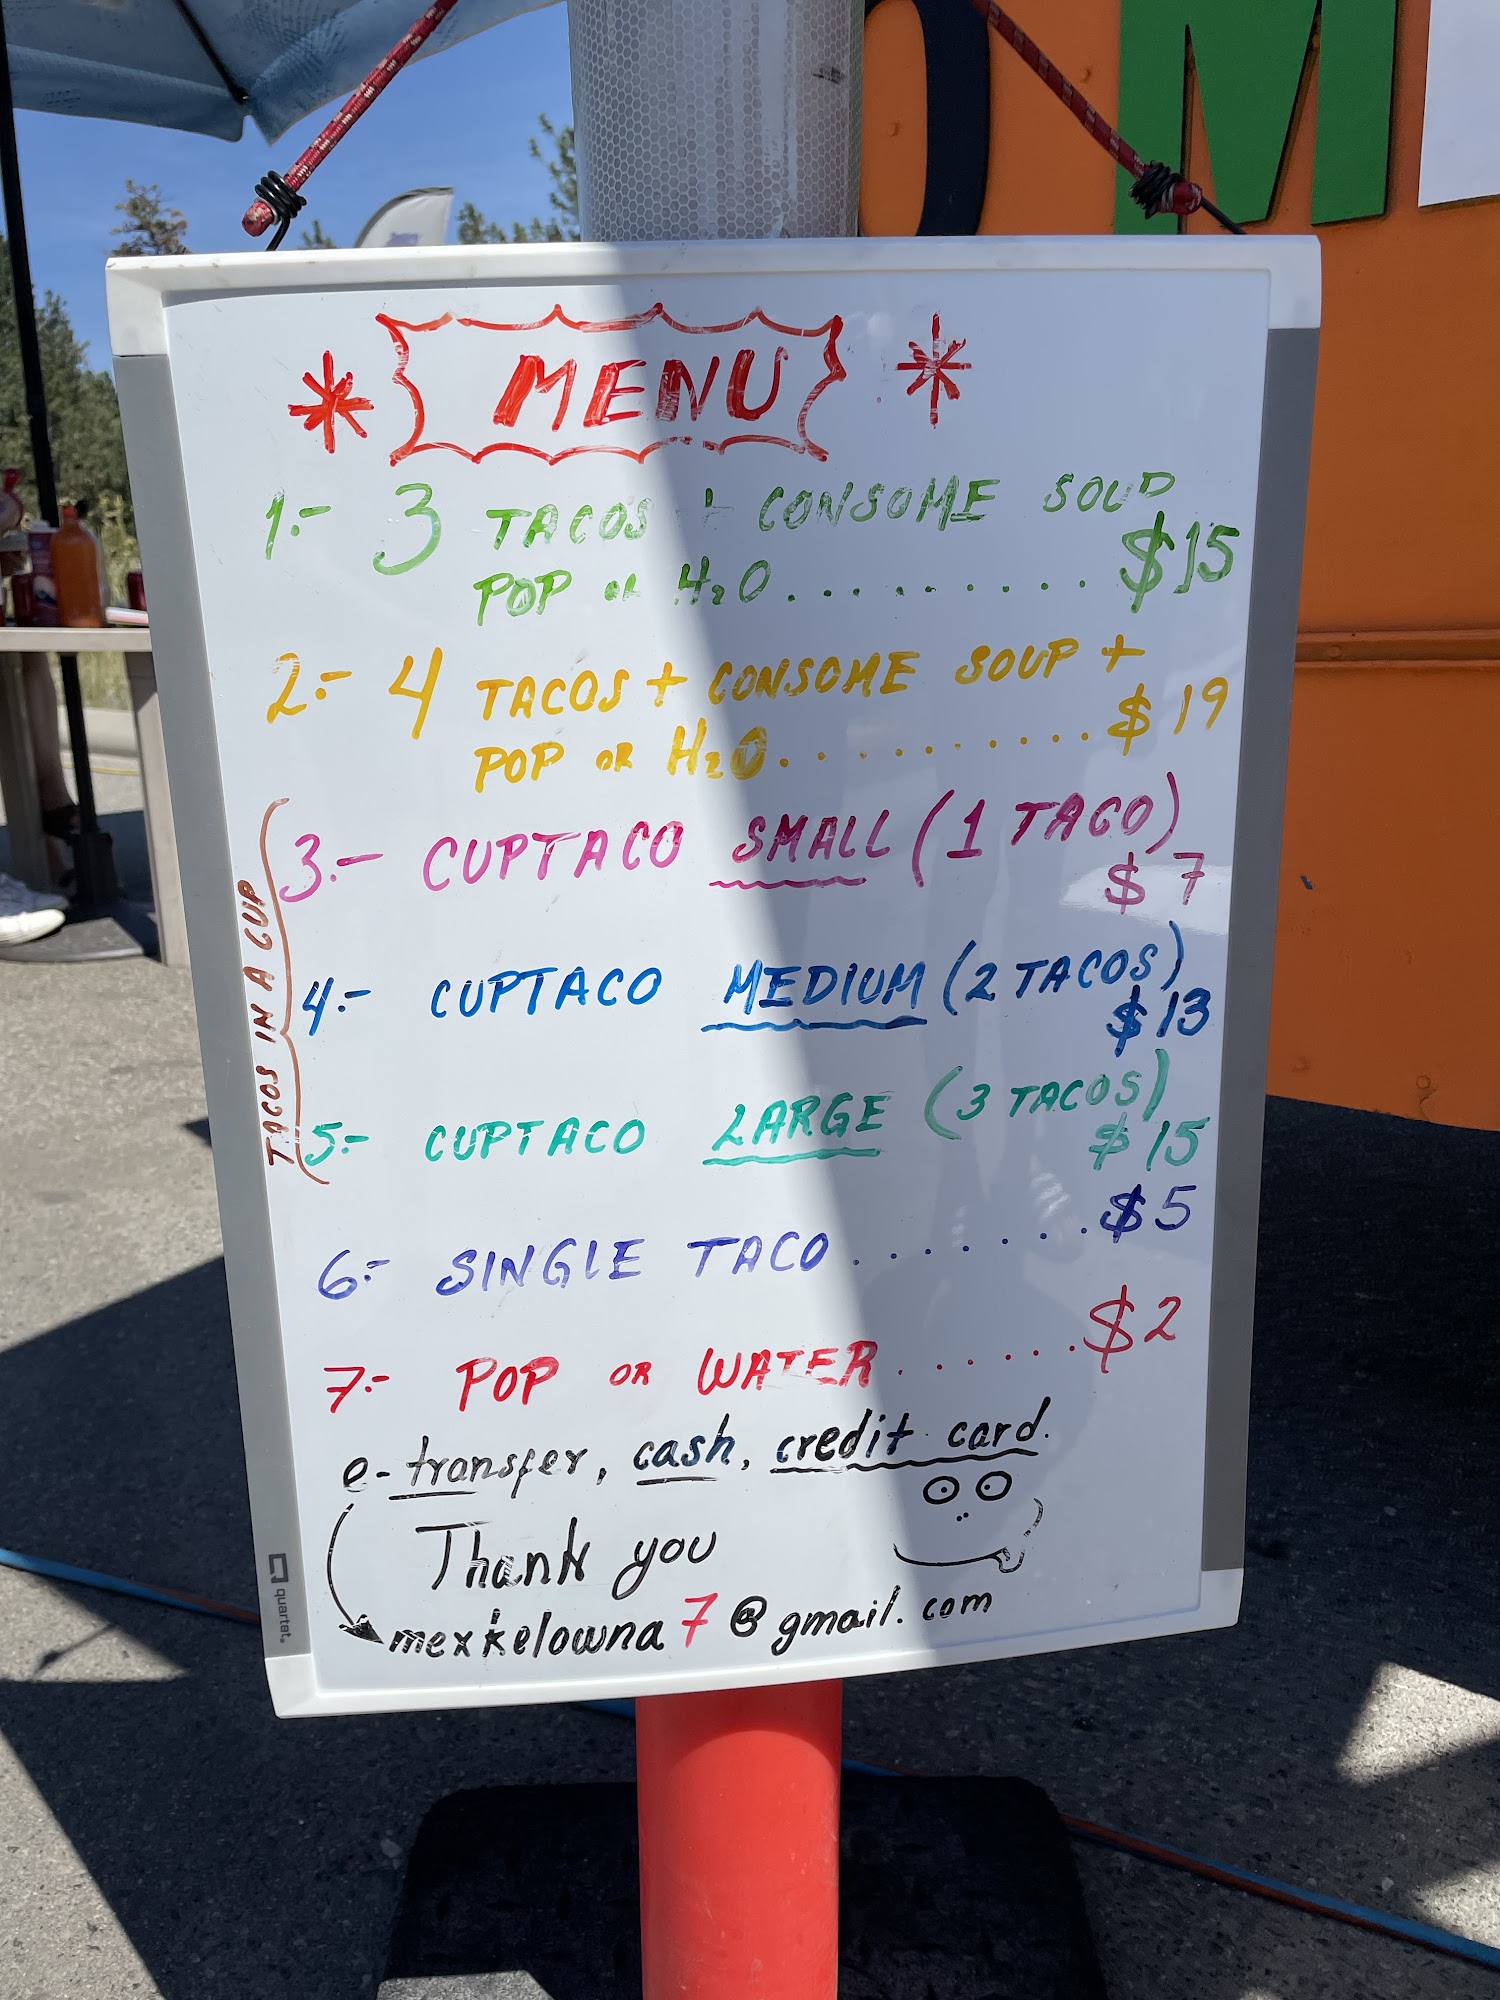 OM
* MENU *
1.- 3 TACOS + CONSOME SOUP
POP OR H2O.......... $15
2.- 4 TACOS + CONSOME SOUP +
POP OR H2O........... $19
TACOS IN A CUP
3.- CUPTACO SMALL (1 TACO)
$7
4.- CUPTACO MEDIUM (2 TACOS)
$13
5.- CUPTACO LARGE (3 TACOS)
$15
6.- SINGLE TACO........ $5
7.- POP OR WATER....... $2
e-transfer, cash, credit card.
Thank you
mexkelowna7@gmail.com
quartet